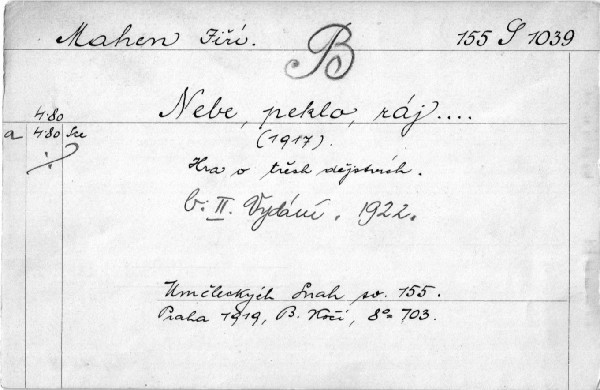 Mahen Jiří. B 155 S 1039
Nebe, peklo, ráj....
480
a 480 Sce
(1917).
Hra o třech dějstvích.
b: II. Vydání. 1922.
Uměleckých Snah sv. 155.
Praha 1919, B. Kočí, 8° 703.